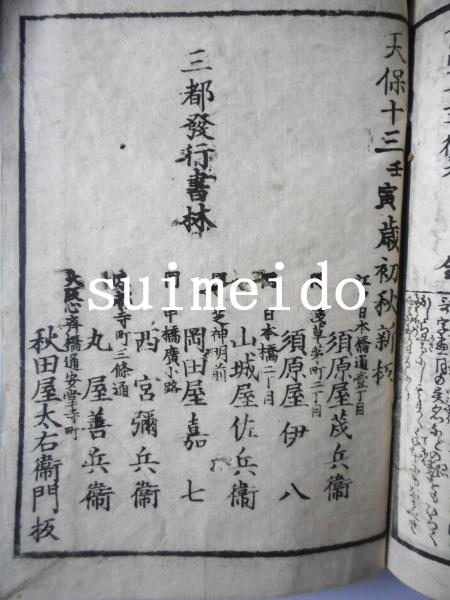 天保十三壬寅歳初秋新板
三都發行書林
江 日本橋通壹丁目
須原屋茂兵衞
淺草茅町二丁目
須原屋伊八
日本橋二丁目
山城屋佐兵衞
芝神明前
岡田屋嘉七
中橋廣小路
西宮彌兵衞
寺町三條通
丸屋善兵衞
大阪心斉橋通安堂寺町
秋田屋太右衞門板
suimeido